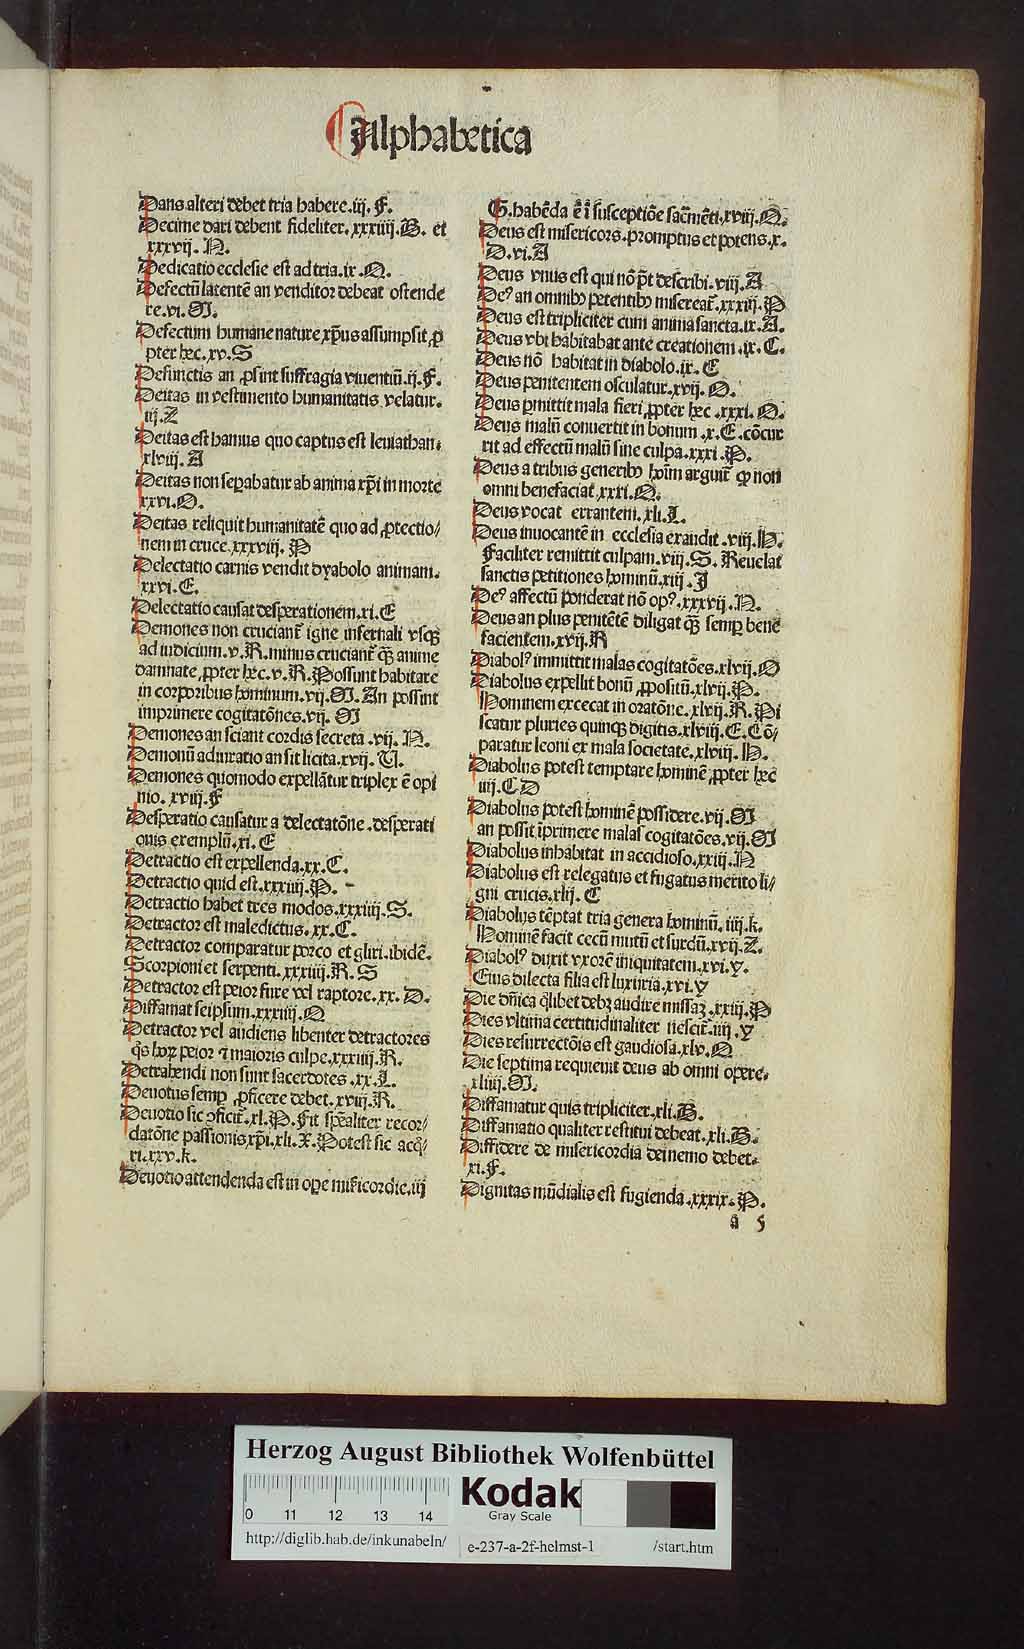 Alphabetica
Dans alteri debet tria habere.iij. F.
Decime dari debent fideliter. xxxiiij.B. et
xxxvij. N.
Dedicatio ecclesie est ad tria.ix.Q.
Defectū latentē an venditor debeat ostende
re.vi.M.
Defectum humane nature xp̄us assumpsit ꝓ
pter hec.xv.S
Defunctis an ꝓsint suffragia viuentiū.ij.F.
Deitas in vestimento humanitatis velatur.
iij.Z
Deitas est hamus quo captus est leuiathan.
xlviij. A
Deitas non seꝑabatur ab anima xp̄i in morte
xxvi.O.
Deitas reliquit humanitatē quo ad ꝓtectio/
nem in cruce.xxxviij. P
Delectatio carnis vendit dyabolo animam.
xxvi.E.
Delectatio causat desperationem.xi.E
Demones non cruciant̄ igne infernali vsqꝫ
ad iudicium.v.R.minus cruciant̄ qꝫ̄ anime
damnate ꝓpter hec.v.R.Possunt habitare
in corporibus hominum.vij.M.An possint
imprimere cogitatōnes.vij. M
Demones an sciant cordis secreta.vij. N.
Demonū adiuratio an sit licita.xvij. U.
Demones quomodo expellātur triplex ē opi
nio. xviij.F
Desperatio causatur a delectatōne.desperati
onis exemplū.xi.E
Detractio est expellenda.xx.C.
Detractio quid est.xxxiiij.P.
Detractio habet tres modos.xxxiiij.S.
Detractor est maledictus.xx.C.
Detractor comparatur porco et gliri.ibidē.
Scorpioni et serpenti.xxxiiij.R.S
Detractor est peior fure vel raptore.xx. D.
Diffamat seipsum.xxxiiij.Q
Detractor vel audiens libenter detractores
q̄s hoꝝ peior ⁊ maioris culpe.xxxiiij.R.
Detrahendi non sunt sacerdotes.xx.L.
Deuotus semꝑ ꝓficere debet.xviij.R.
Deuotio sic ꝯficit̄.xl.P.Fit sp̄ealiter recor/
datōne passionis xp̄i.xli.X.Potest sic acq̄/
ri.xxv.k.
Deuotio attendenda est in oꝑe mīsericordie.iij
G.habēda ē ī susceptiōe sacm̄ēti.xviij.Q.
Deus est misericors.promptus et potens.x.
D.vi.A
Deus vnus est qui nō pōt describi.viij.A
Deꝰ an omnibꝰ petentibꝰ misereat̄.xxxij.P
Deus est tripliciter cum anima sancta.ix.A.
Deus vbi habitabat ante creationem.ix.C.
Deus nō habitat in diabolo.ix.C
Deus penitentem osculatur.xvij.O.
Deus ꝑmittit mala fieri ꝓpter hec.xxxi.O.
Deus malū conuertit in bonum.x.E.cōcur
rit ad effectū malū sine culpa.xxxi.P.
Deus a tribus generibꝰ hoīm arguit̄ ꝙ non
omni benefaciat.xxxi.Q.
Deus vocat errantem.xli.L.
Deus inuocantē in ecclesia exaudit.viij.H.
Faciliter remittit culpam.viij.S.Reuelat
sanctis petitiones hominū.xiij.I
Deꝰ affectū ponderat nō opꝰ.xxxvij.N.
Deus an plus penitētē diligat qꝫ̄ semꝑ bene
facientem.xvij.R
Diabolꝰ immittit malas cogitatōes.xlvij.O
Diabolus expellit bonū ꝓpositū.xlvij.P.
Hominem excecat in oratōne.xlvij.R.Pi
scatur pluries quinqꝫ digitis.xlviij.E.Cō/
paratur leoni ex mala societate.xlviij.H.
Diabolus potest temptare hominē ꝓpter hec
iiij.C D
Diabolus potest hominē possidere.vij.M
an possit īprimere malas cogitatōes.vij.M
Diabolus inhabitat in accidioso.xxiij.N
Diabolus est relegatus et fugatus merito li/
gni crucis.xlij.C
Diabolus tēptat tria genera hominū.iiij.k.
Hominē facit cecū mutū et surdū.xvij.Z.
Diabolꝰ duxit vxorē iniquitatem.xvi.y.
Eius dilecta filia est luxuria.xvi.y
Die dn̄ica q̄libet debꝫ audire missaꝫ.xxiij.P
Dies vltima certitudinaliter nescit̄.iiij.y
Dies resurrectōis est gaudiosa.xlv.Q
Die septima requieuit deus ab omni opere.
xliiij.M.
Diffamatur quis tripliciter.xli.B.
Diffamatio qualiter restitui debeat.xli.B.
Diffidere de misericordia dei nemo debet.
xi.F.
Dignitas mūdialis est fugienda.xxxix.P.
a 5
Herzog August Bibliothek Wolfenbüttel
0 11 12 13 14
Kodak
Gray Scale
http://diglib.hab.de/inkunabeln/ e-237-a-2f-helmst-1 /start.htm